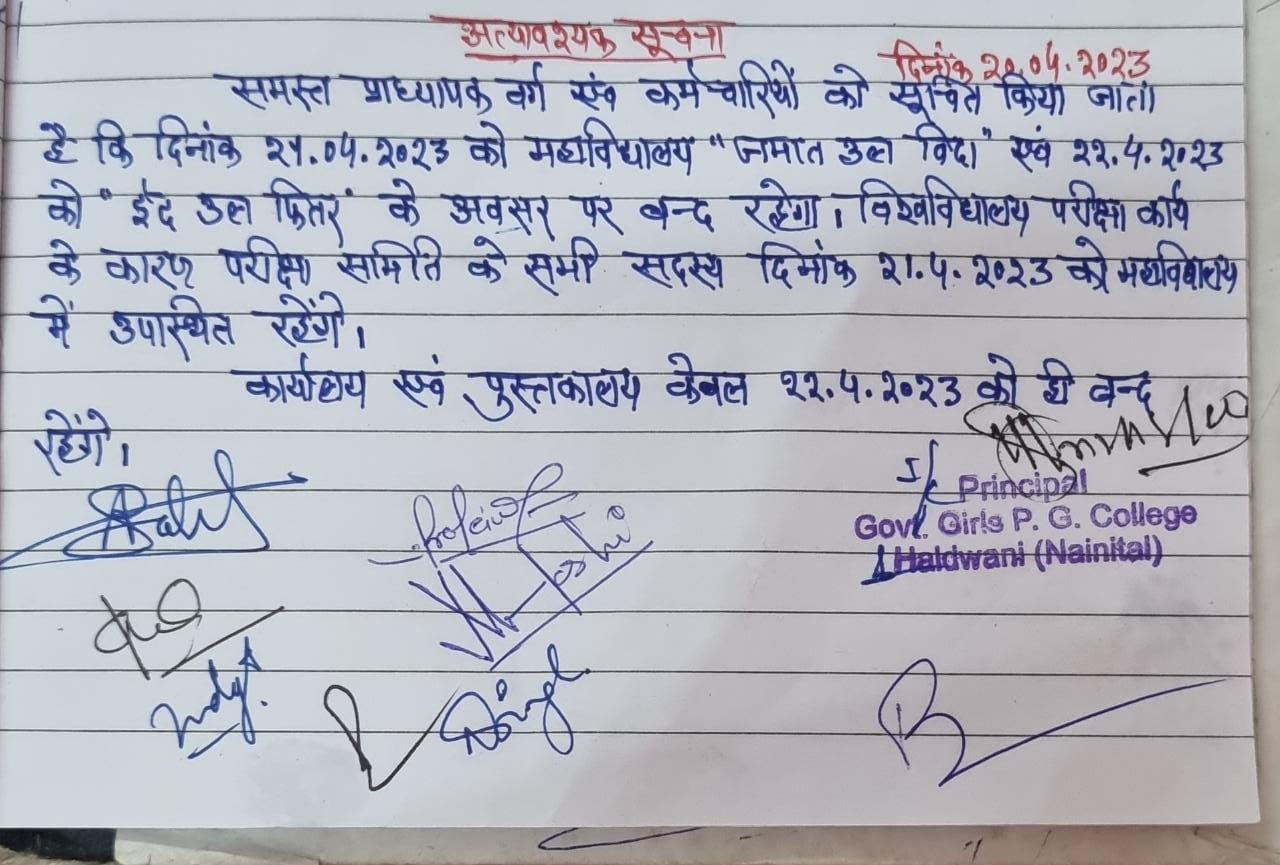 अत्यावश्यक सूचना
दिनांक २०.०४.२०२३
समस्त प्राध्यापक वर्ग एवं कर्मचारियों को सूचित किया जाता
है कि दिनांक २१.०४.२०२३ को महाविद्यालय "जमात उल विदा" एवं २२.४.२०२३
को "ईद उल फितर" के अवसर पर बन्द रहेगा। विश्वविद्यालय परीक्षा कार्य
के कारण परीक्षा समिति के सभी सदस्य दिनांक २१.४.२०२३ को महाविद्यालय
में उपस्थित रहेंगे।
कार्यालय एवं पुस्तकालय केवल २२.४.२०२३ को ही बन्द
रहेंगे।
I/c Principal
Govt. Girls P. G. College
Haldwani (Nainital)